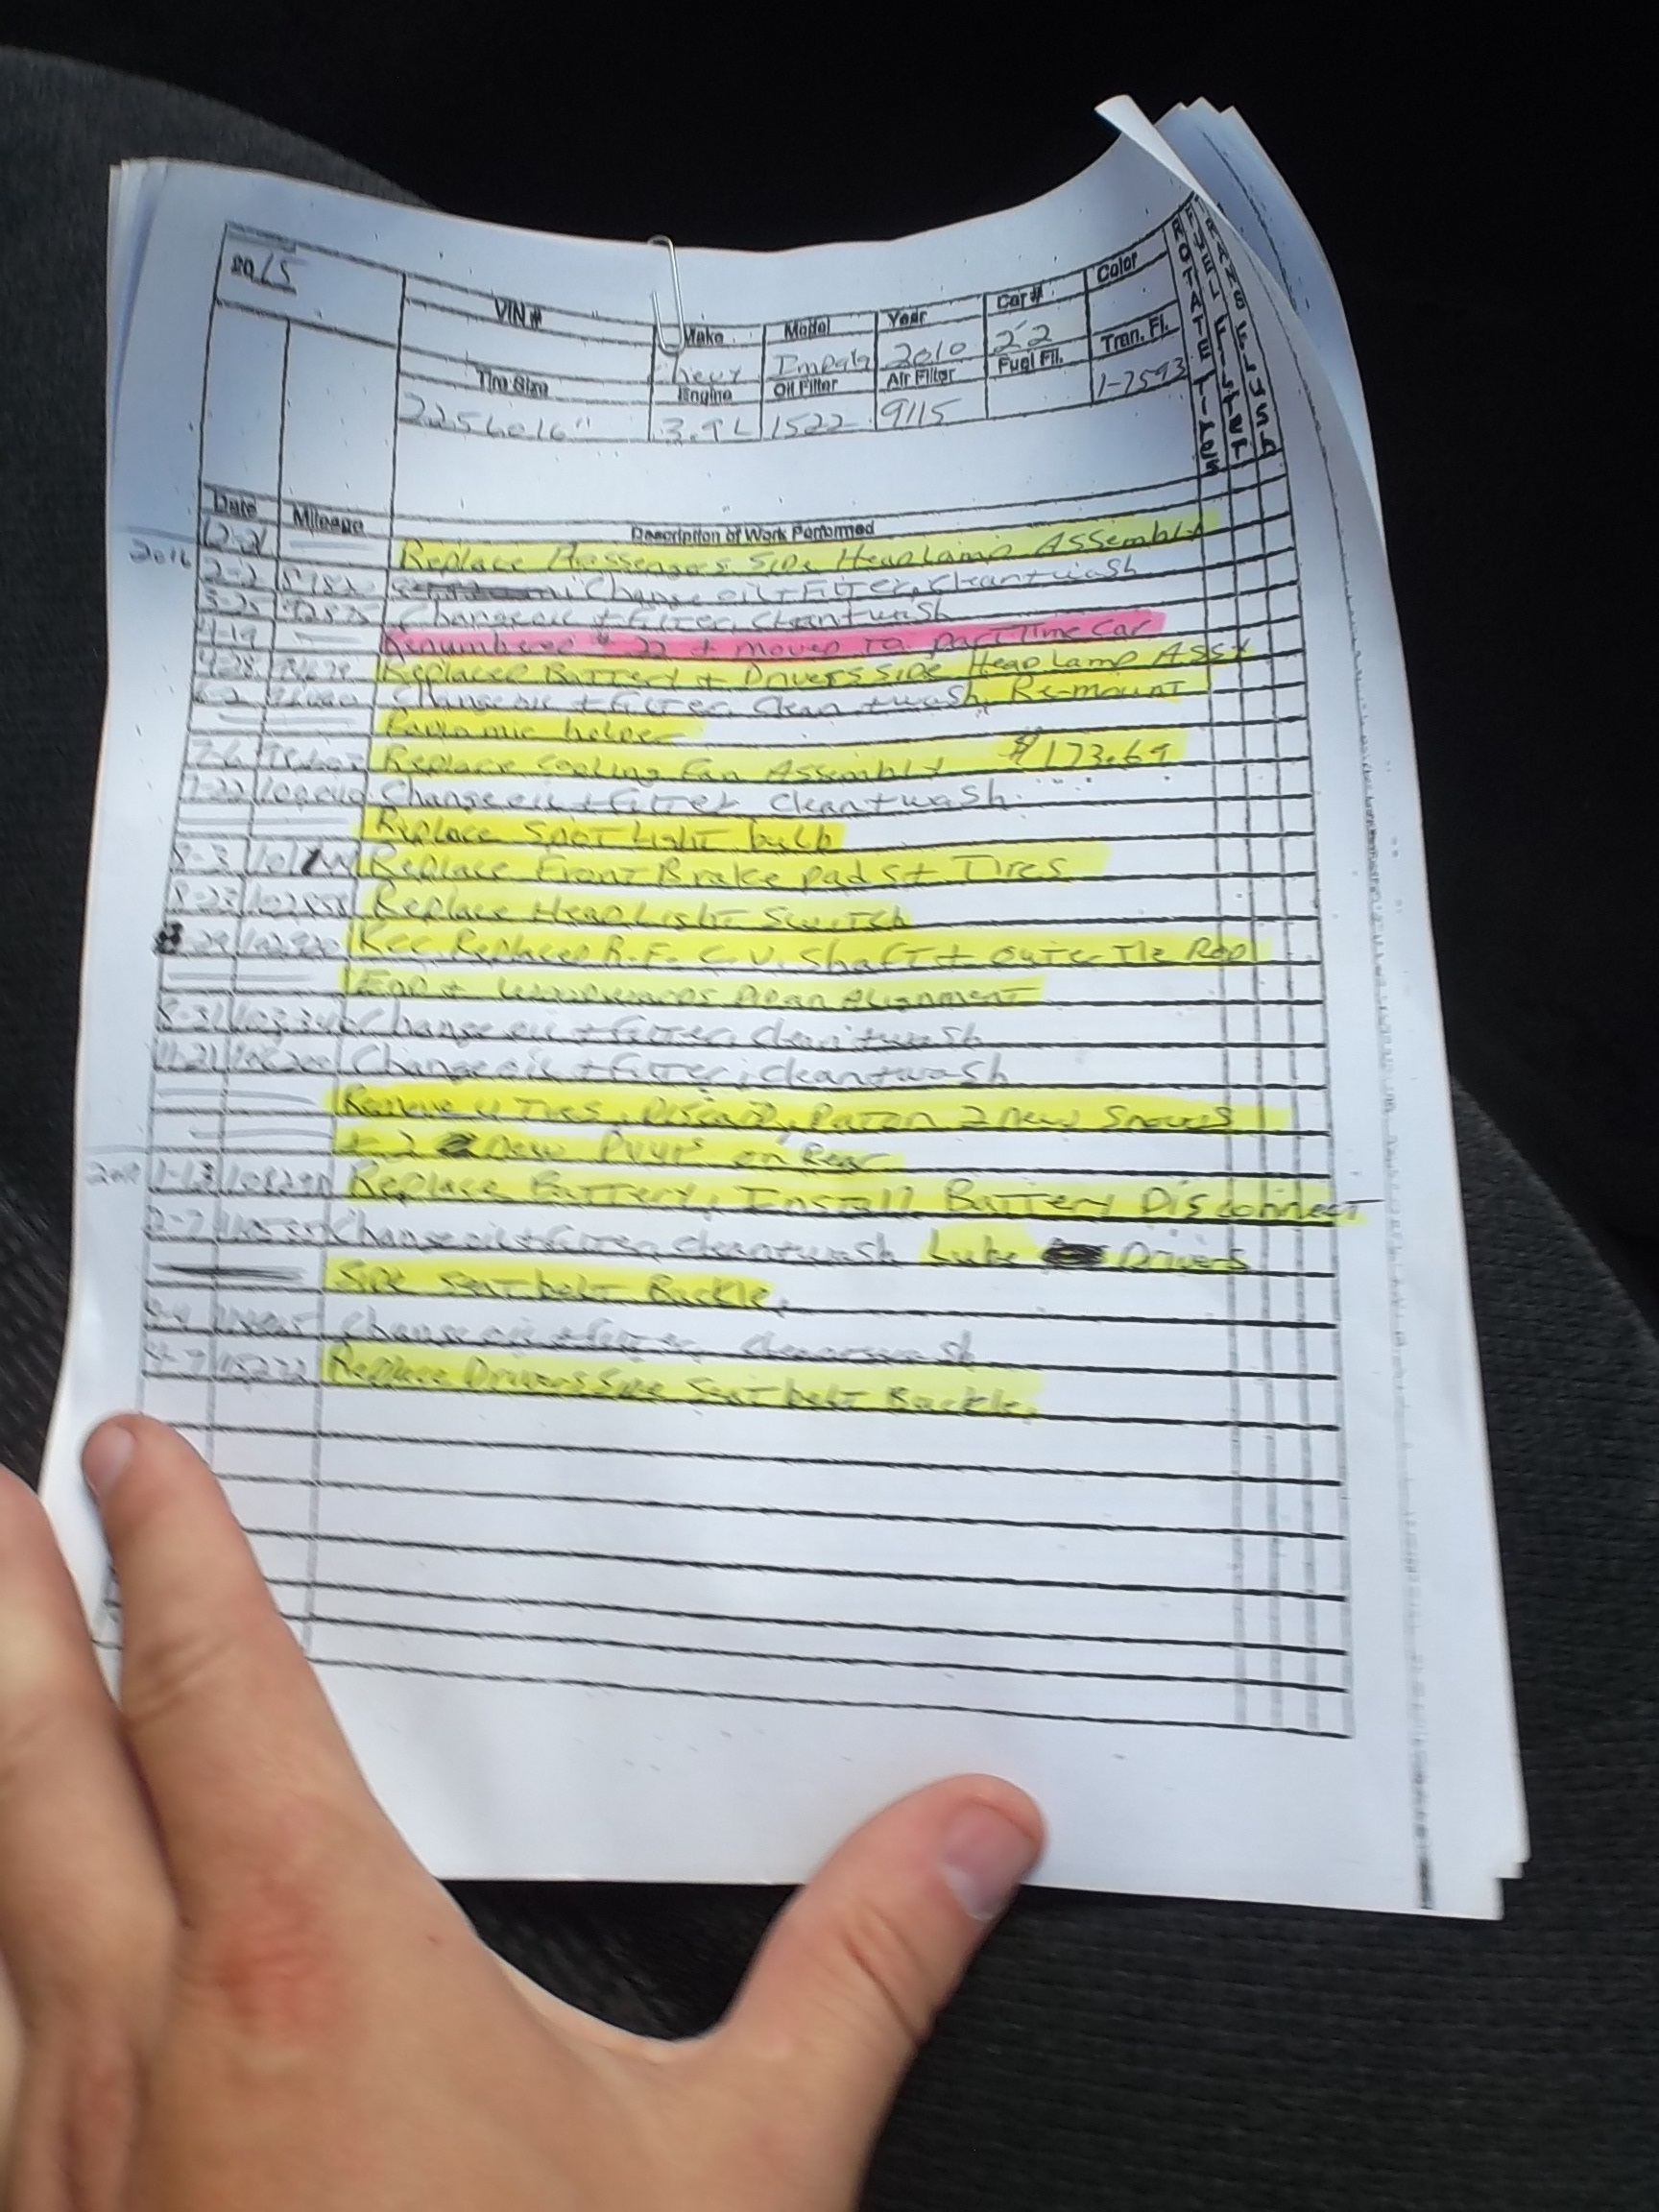 2015
VIN # Make Model Year Car # Color
Chevy Impala 2010 22
Tire Size Engine Oil Filter Air Filter Fuel Fil. Tran. Fl.
2256016" 3.9L 1522 9115 1-7593
ROTATE TIRES
FUEL FILTER
Date Mileage Description of Work Performed
12-21 Replace Passengers Side HeadLamp Assembly
2016
2-2 Change oil + Filter, clean + wash
3-25 92575 Change oil + filter, clean + wash
4-19 Renumbered # 22 + moved to part Time Car
4-28 Replaced Battery + Drivers side HeadLamp Assy
6-2 Change oil + filter, clean + wash, Re-mount
helper
7-6 Replace Cooling Fan Assembly $173.69
7-22 Change oil + filter clean + wash.
Replace SpotLight bulb
8-3 Replace Front Brake pads + Tires
8-23 102858 Replace HeadLight Switch
8-29 102920 Replaced R.F. C.V. Shaft + outer Tie Rod
End + Alignment
8-31 Change oil + filter, clean + wash
11-21 106200 Change oil + filter, clean + wash
Remove 4 Tires, Discard, Put on 2 new Snows
+ 2 new on Rear
1-13 Replace Battery, Install Battery Disconnect
2-7 Change oil + filter, clean + wash Lube Drivers
Side seat belt Buckle,
Change oil + filter, clean + wash
4-7 115272 Replace Drivers Side Seat belt Buckle,